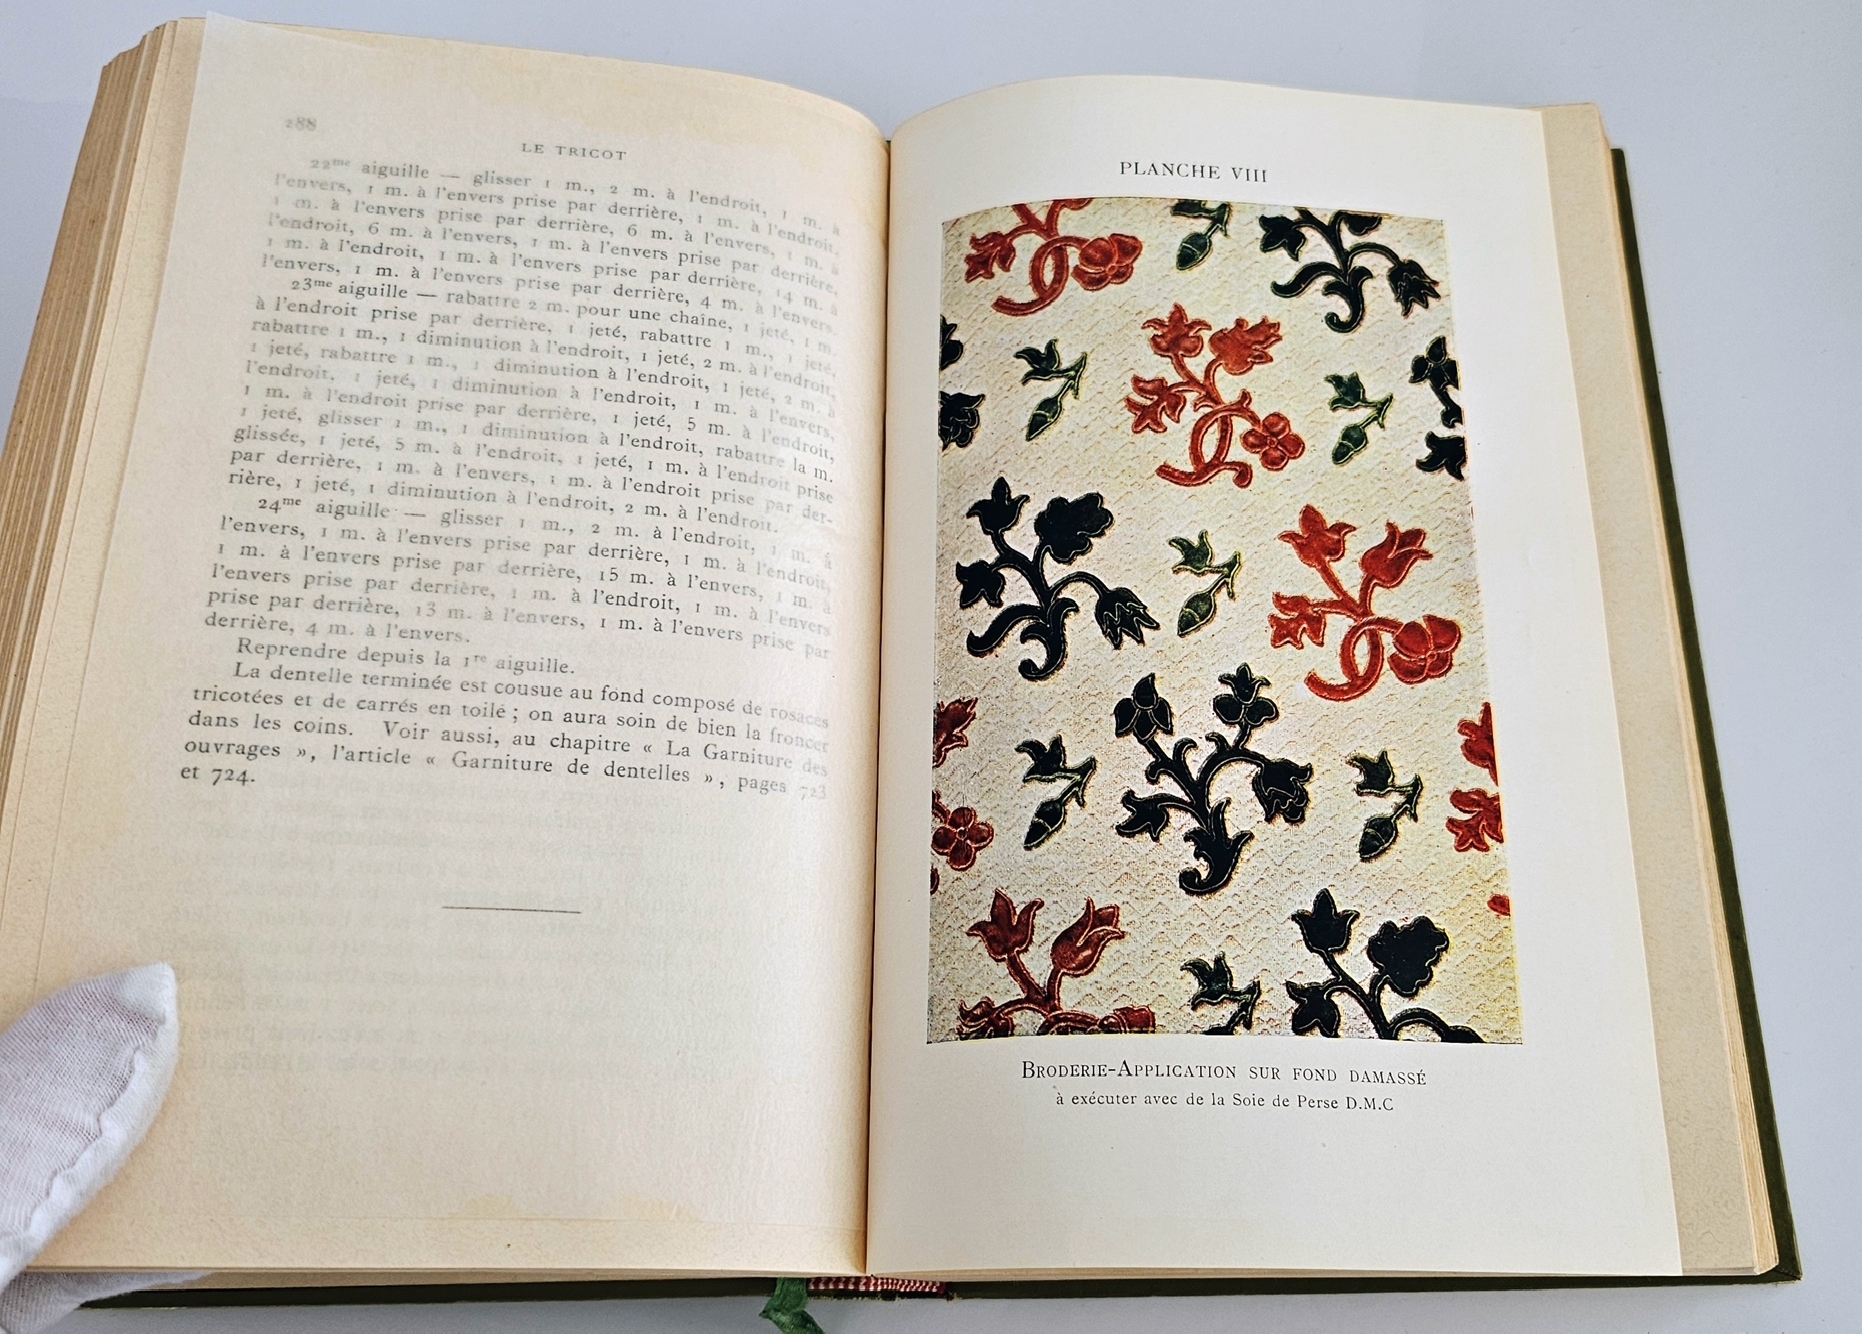 288
LE TRICOT
22me aiguille — glisser 1 m., 2 m. à l'endroit, 1 m. à
l'envers, 1 m. à l'envers prise par derrière, 1 m. à l'endroit,
1 m. à l'envers prise par derrière, 6 m. à l'envers, 1 m. à
l'endroit, 6 m. à l'envers, 1 m. à l'envers prise par derrière,
1 m. à l'endroit, 1 m. à l'envers prise par derrière, 14 m. à
l'envers, 1 m. à l'envers prise par derrière, 4 m. à l'envers.
23me aiguille — rabattre 2 m. pour une chaîne, 1 jeté, 1 m.
à l'endroit prise par derrière, 1 jeté, rabattre 1 m., 1 jeté,
rabattre 1 m., 1 diminution à l'endroit, 1 jeté, 2 m. à l'endroit,
1 jeté, rabattre 1 m., 1 diminution à l'endroit, 1 jeté, 2 m. à
l'endroit, 1 jeté, 1 diminution à l'endroit, 1 m. à l'envers,
1 m. à l'endroit prise par derrière, 1 jeté, 5 m. à l'endroit,
1 jeté, glisser 1 m., 1 diminution à l'endroit, rabattre la m.
glissée, 1 jeté, 5 m. à l'endroit, 1 jeté, 1 m. à l'endroit prise
par derrière, 1 m. à l'envers, 1 m. à l'endroit prise par der-
rière, 1 jeté, 1 diminution à l'endroit, 2 m. à l'endroit.
24me aiguille — glisser 1 m., 2 m. à l'endroit, 1 m. à
l'envers, 1 m. à l'envers prise par derrière, 1 m. à l'endroit,
1 m. à l'envers prise par derrière, 15 m. à l'envers, 1 m. à
l'envers prise par derrière, 1 m. à l'endroit, 1 m. à l'envers
prise par derrière, 13 m. à l'envers, 1 m. à l'envers prise par
derrière, 4 m. à l'envers.
Reprendre depuis la 1re aiguille.
La dentelle terminée est cousue au fond composé de rosaces
tricotées et de carrés en toile ; on aura soin de bien la froncer
dans les coins. Voir aussi, au chapitre « La Garniture des
ouvrages », l'article « Garniture de dentelles », pages 723
et 724.
PLANCHE VIII
BRODERIE-APPLICATION SUR FOND DAMASSÉ
à exécuter avec de la Soie de Perse D.M.C